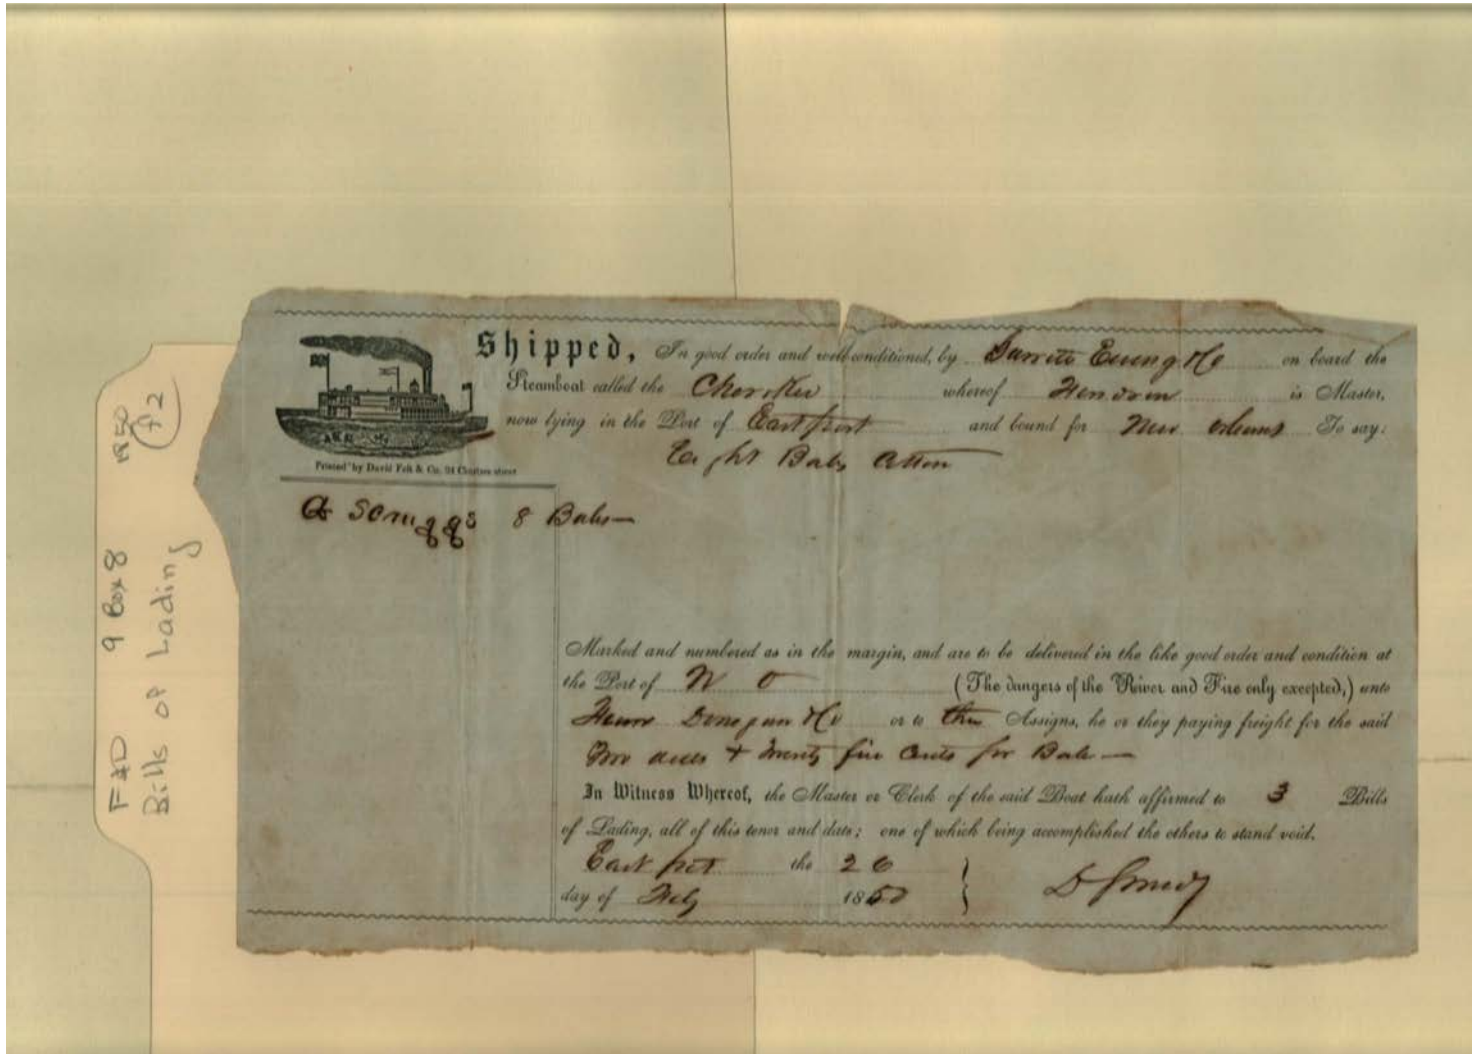 Shipped, In good order and well conditioned, by Ewing & Co on board the
Steamboat called the Cherokee whereof Herndon is Master,
now lying in the Port of Eastport and bound for New Orleans To say:
Eight Bales Cotton
Printed by David Felt & Co. 24 Chartres street
8 Bales
Marked and numbered as in the margin, and are to be delivered in the like good order and condition at
the Port of N O (The dangers of the River and Fire only excepted,) unto
Donegan & Co or to their Assigns, he or they paying freight for the said
Two & twenty five Cents per Bale
In Witness Whereof, the Master or Clerk of the said Boat hath affirmed to 3 Bills
of Lading, all of this tenor and date; one of which being accomplished the others to stand void.
East port the 26
day of Feby 1850
F&D 9 Box 8 1850
Bills of Lading f2